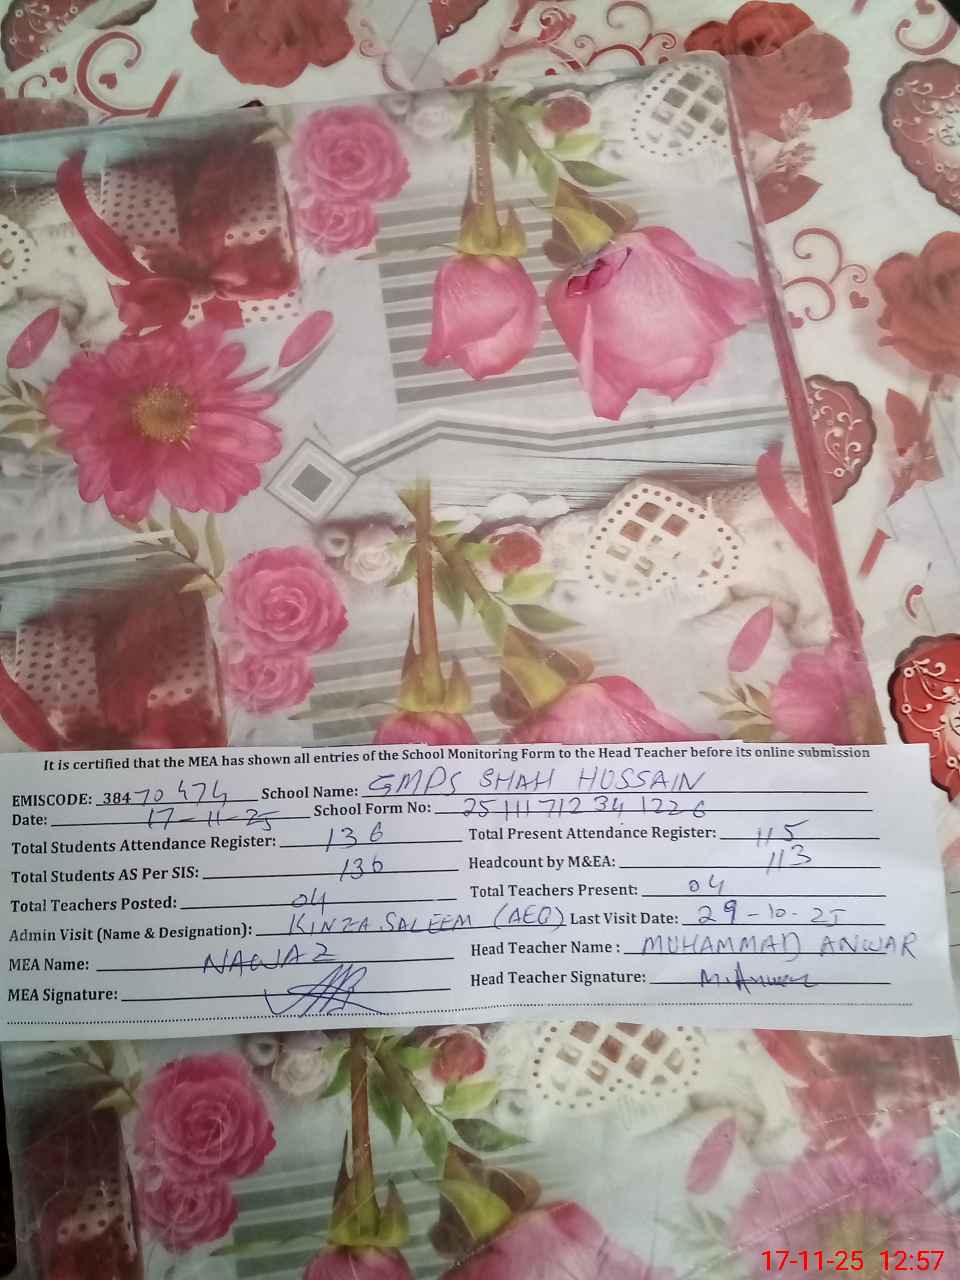 It is certified that the MEA has shown all entries of the School Monitoring Form to the Head Teacher before its online submission
EMISCODE: 38470474 School Name: GMPS SHAH HUSSAIN
Date: 17-11-25 School Form No: 25111712341226
Total Students Attendance Register: 136 Total Present Attendance Register: 115
Total Students AS Per SIS: 136 Headcount by M&EA: 113
Total Teachers Posted: 04 Total Teachers Present: 04
Admin Visit (Name & Designation): KINZA SALEEM (AEO) Last Visit Date: 29-10-25
MEA Name: NAWAZ Head Teacher Name : MUHAMMAD ANWAR
MEA Signature: Head Teacher Signature: M.Anwar
17-11-25 12:57